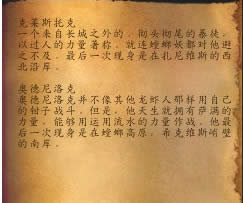 克莱斯托克
一个来自长城之外的，彻头彻尾的暴徒。
以过人的力量著称，就连螳螂妖都对他避
之不及。最后一次现身是在扎尼维斯的西
北沿岸。
奥德尼洛克
奥德尼洛克并不像其他龙虾人那样用自己
的钳子战斗。但是，他天生就拥有萨满的
力量，能够用运用流水的力量作战。他最
后一次现身是在螳螂高原，希克维斯峭壁
的南岸。